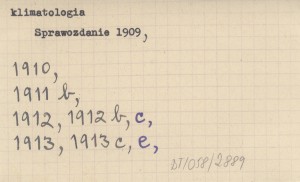 klimatologia
Sprawozdanie 1909,
1910,
1911 b,
1912, 1912 b, c,
1913, 1913 c, e,
DT/058/2889